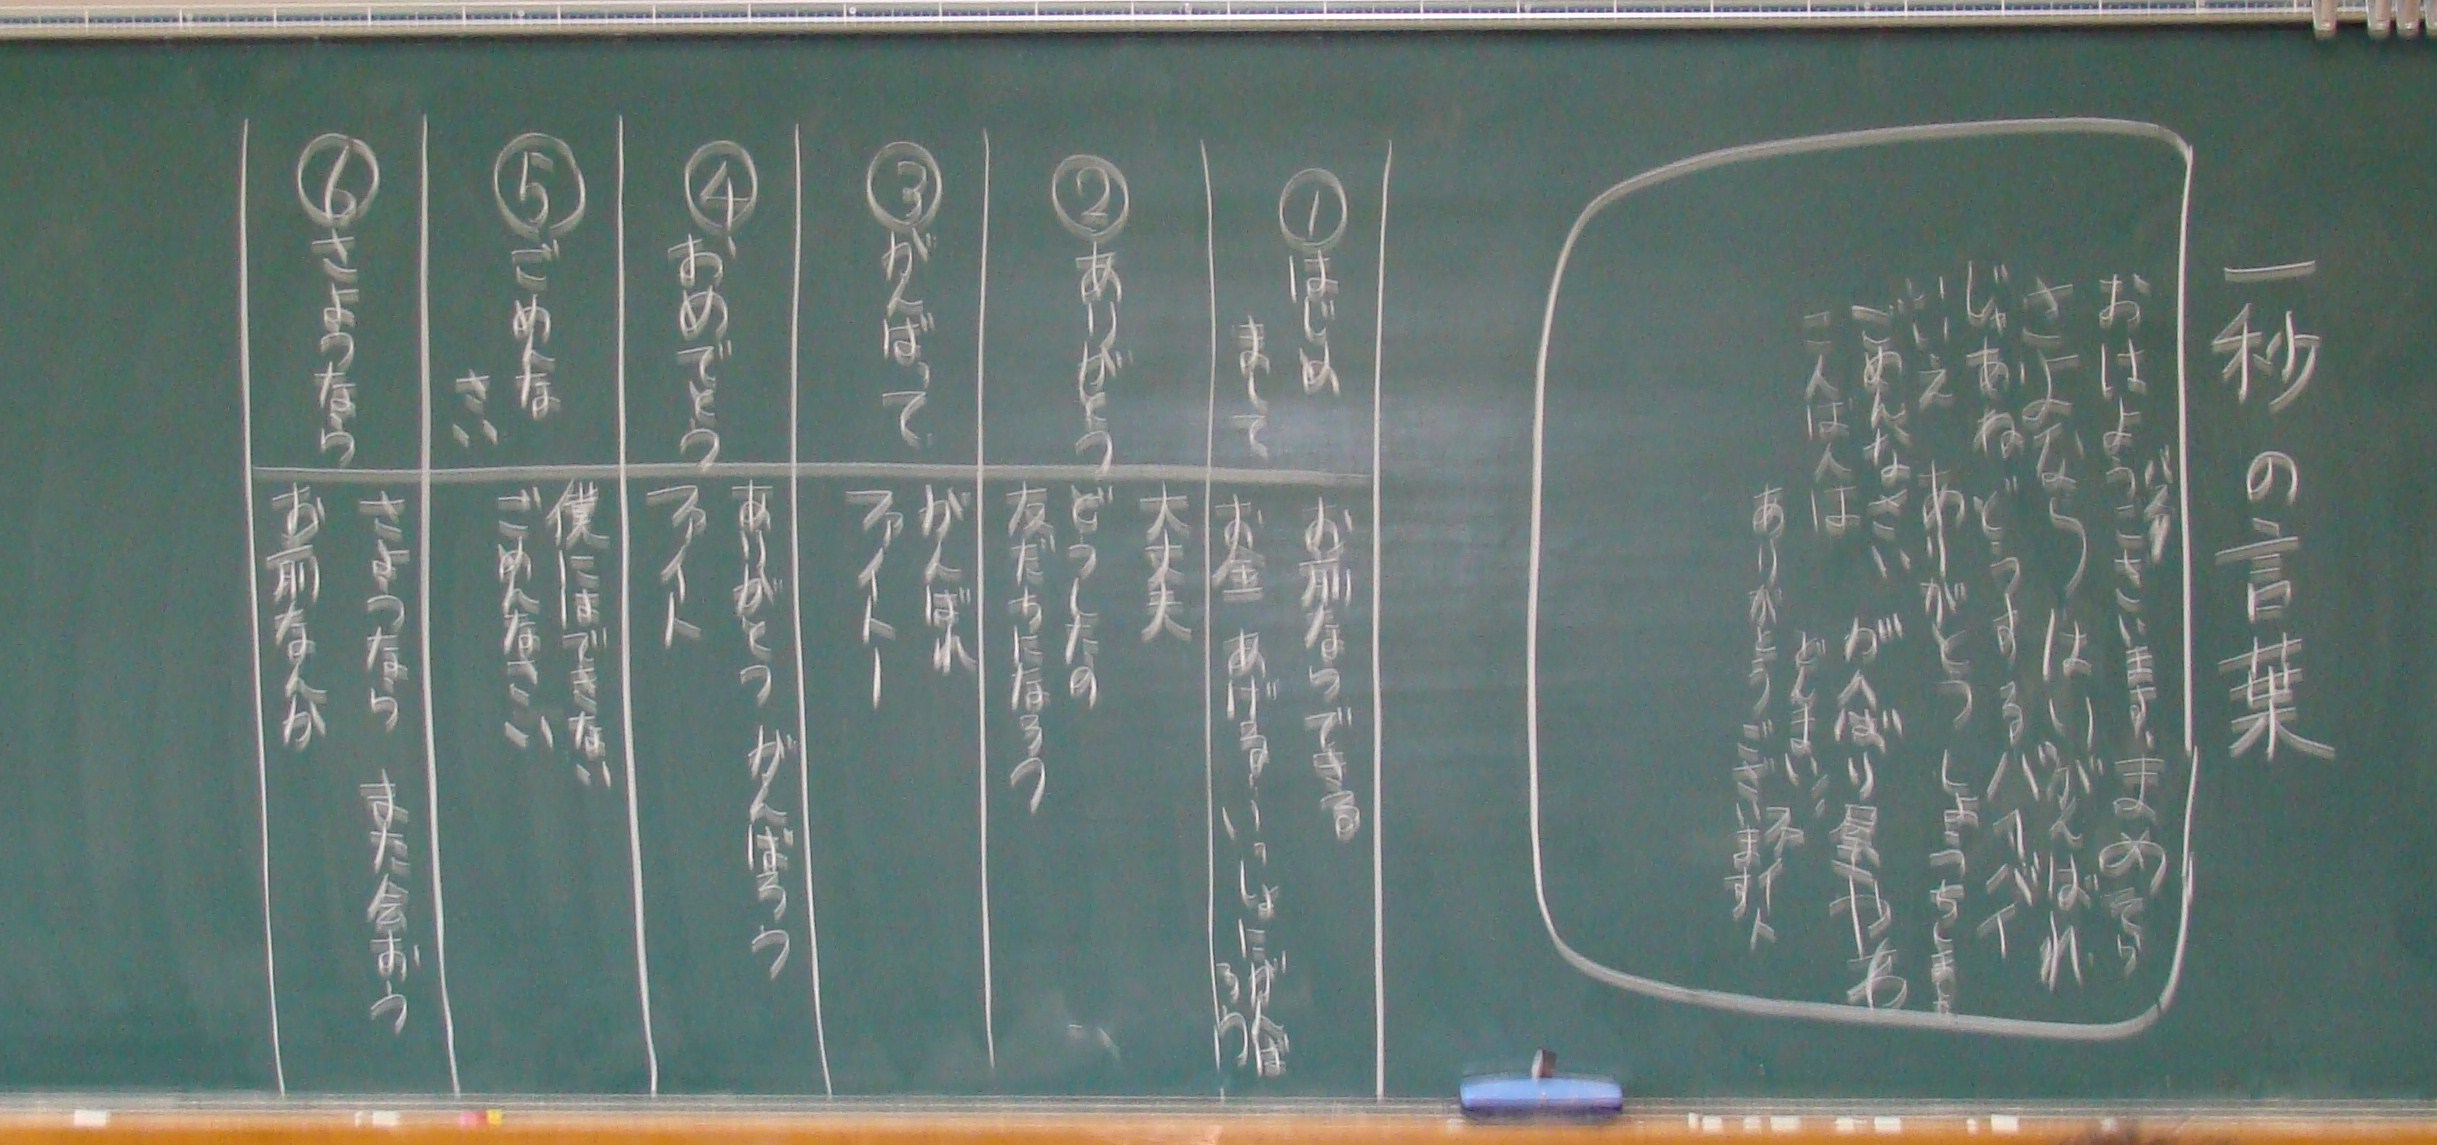 一秒の言葉
おはようございます まめそら
さようなら はい がんばれ
じゃあね どうする バイバイ
いいえ ありがとう しょうちしま
ごめんなさい がんばり屋やね
こんばんは どんまい ファイト
ありがとうございます
①はじめ
まして
お前ならできる
お金 あげる いっしょにがんば
ろう
②ありがとう
大丈夫
どうしたの
友だちになろう
③がんばって
がんばれ
ファイトー
④おめでとう
ありがとう がんばろう
ファイト
⑤ごめんな
さい
僕にはできない
ごめんなさい
⑥さようなら
さようなら また会おう
お前なんか